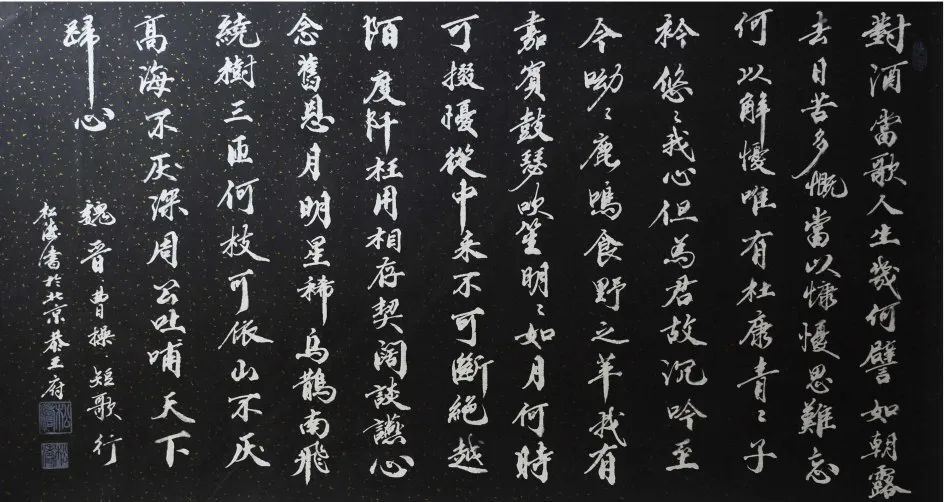 對酒當歌人生幾何譬如朝露
去日苦多慨當以慷懮思難忘
何以解懮唯有杜康青〻子
衿悠〻我心但為君故沉吟至
今呦〻鹿鳴食野之苹我有
嘉賓鼓瑟吹笙明〻如月何時
可掇懮從中来不可斷絶越
陌度阡枉用相存契闊談讌心
念舊恩月明星稀烏鵲南飛
繞樹三匝何枝可依山不厌
高海不厌深周公吐哺天下
歸心
魏晋曹操·短歌行
松海書於北京恭王府